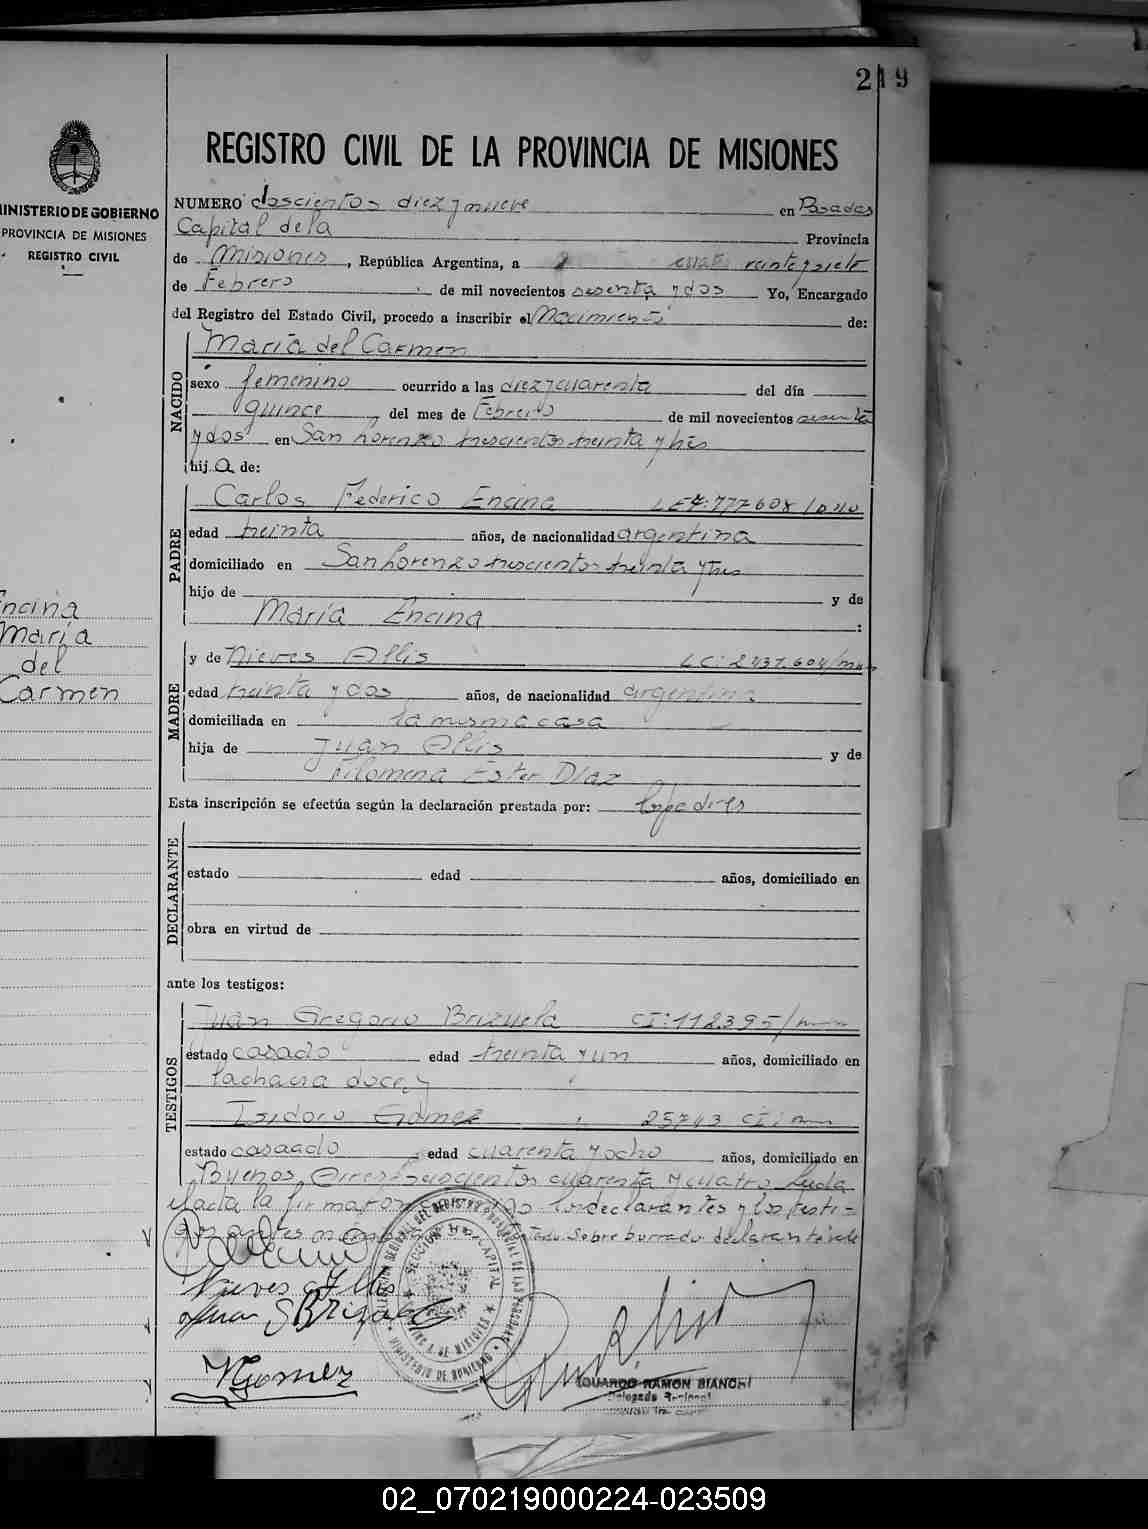 219
MINISTERIO DE GOBIERNO
PROVINCIA DE MISIONES
REGISTRO CIVIL
Encina
María
del
Carmen
REGISTRO CIVIL DE LA PROVINCIA DE MISIONES
NUMERO doscientos diez y nueve en Posadas
Capital de la Provincia
de Misiones, República Argentina, a veinte y siete
de Febrero de mil novecientos sesenta y dos Yo, Encargado
del Registro del Estado Civil, procedo a inscribir el Nacimiento de:
NACIDO
María del Carmen
sexo femenino ocurrido a las diez y cuarenta del día
quince del mes de Febrero de mil novecientos sesenta
y dos en San Lorenzo trescientos treinta y tres
hija de:
PADRE
Carlos Federico Encina
edad treinta años, de nacionalidad argentina
domiciliado en San Lorenzo trescientos treinta y tres
hijo de y de
María Encina :
MADRE
y de Nieves Allis
edad treinta y dos años, de nacionalidad argentina
domiciliada en la misma casa
hija de Juan Allis y de
Filomena Ester Díaz
Esta inscripción se efectúa según la declaración prestada por: los padres
DECLARANTE
estado edad años, domiciliado en
obra en virtud de
ante los testigos:
TESTIGOS
Juan Gregorio Brizuela CI: 112395/
estado casado edad treinta y un años, domiciliado en
la chacra doce y
Isidoro Gomez 25743 CI
estado casado edad cuarenta y ocho años, domiciliado en
Buenos Aires cuarenta y cuatro Leida
el acta la firmaron los declarantes y los testi-
gos Sobre borrado declarante vale
Nieves Allis
Juan G Brizuela
Gomez
SECCION CAPITAL
MINISTERIO DE GOBIERNO
EDUARDO RAMON BIANCHI
Delegado Regional
02_070219000224-023509